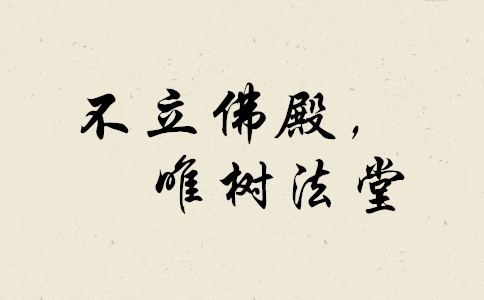 不立佛殿，
唯树法堂